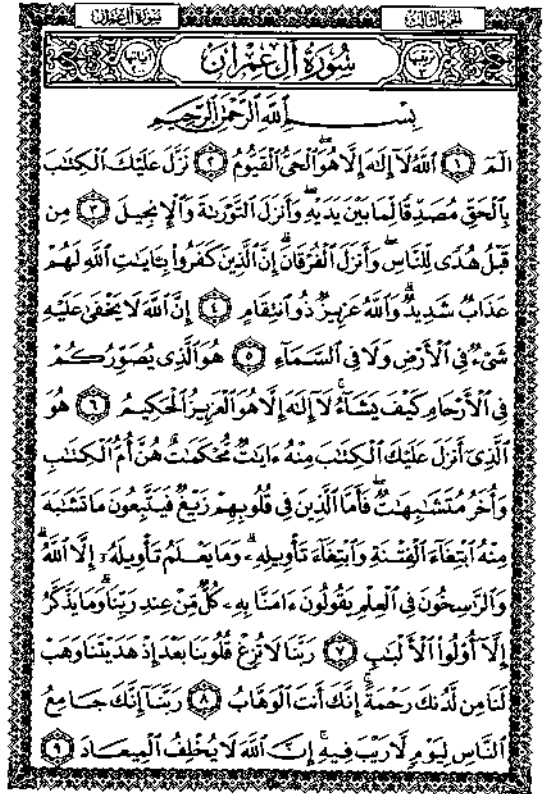 سُورَةُ آلِ عِمْرَانَ
الجزء الثالث
سُورَةُ آلِ عِمْرَانَ
بِسْمِ ٱللَّهِ ٱلرَّحْمَٰنِ ٱلرَّحِيمِ
الٓمٓ ١ ٱللَّهُ لَآ إِلَٰهَ إِلَّا هُوَ ٱلْحَىُّ ٱلْقَيُّومُ ٢ نَزَّلَ عَلَيْكَ ٱلْكِتَٰبَ
بِٱلْحَقِّ مُصَدِّقًا لِّمَا بَيْنَ يَدَيْهِ وَأَنزَلَ ٱلتَّوْرَىٰةَ وَٱلْإِنجِيلَ ٣ مِن
قَبْلُ هُدًى لِّلنَّاسِ وَأَنزَلَ ٱلْفُرْقَانَ ۗ إِنَّ ٱلَّذِينَ كَفَرُوا۟ بِـَٔايَٰتِ ٱللَّهِ لَهُمْ
عَذَابٌ شَدِيدٌ ۗ وَٱللَّهُ عَزِيزٌ ذُو ٱنتِقَامٍ ٤ إِنَّ ٱللَّهَ لَا يَخْفَىٰ عَلَيْهِ
شَىْءٌ فِى ٱلْأَرْضِ وَلَا فِى ٱلسَّمَآءِ ٥ هُوَ ٱلَّذِى يُصَوِّرُكُمْ
فِى ٱلْأَرْحَامِ كَيْفَ يَشَآءُ ۚ لَآ إِلَٰهَ إِلَّا هُوَ ٱلْعَزِيزُ ٱلْحَكِيمُ ٦ هُوَ
ٱلَّذِىٓ أَنزَلَ عَلَيْكَ ٱلْكِتَٰبَ مِنْهُ ءَايَٰتٌ مُّحْكَمَٰتٌ هُنَّ أُمُّ ٱلْكِتَٰبِ
وَأُخَرُ مُتَشَٰبِهَٰتٌ ۖ فَأَمَّا ٱلَّذِينَ فِى قُلُوبِهِمْ زَيْغٌ فَيَتَّبِعُونَ مَا تَشَٰبَهَ
مِنْهُ ٱبْتِغَآءَ ٱلْفِتْنَةِ وَٱبْتِغَآءَ تَأْوِيلِهِۦ ۗ وَمَا يَعْلَمُ تَأْوِيلَهُۥٓ إِلَّا ٱللَّهُ ۗ
وَٱلرَّٰسِخُونَ فِى ٱلْعِلْمِ يَقُولُونَ ءَامَنَّا بِهِۦ كُلٌّ مِّنْ عِندِ رَبِّنَا ۗ وَمَا يَذَّكَّرُ
إِلَّآ أُو۟لُوا۟ ٱلْأَلْبَٰبِ ٧ رَبَّنَا لَا تُزِغْ قُلُوبَنَا بَعْدَ إِذْ هَدَيْتَنَا وَهَبْ
لَنَا مِن لَّدُنكَ رَحْمَةً ۚ إِنَّكَ أَنتَ ٱلْوَهَّابُ ٨ رَبَّنَآ إِنَّكَ جَامِعُ
ٱلنَّاسِ لِيَوْمٍ لَّا رَيْبَ فِيهِ ۚ إِنَّ ٱللَّهَ لَا يُخْلِفُ ٱلْمِيعَادَ ٩